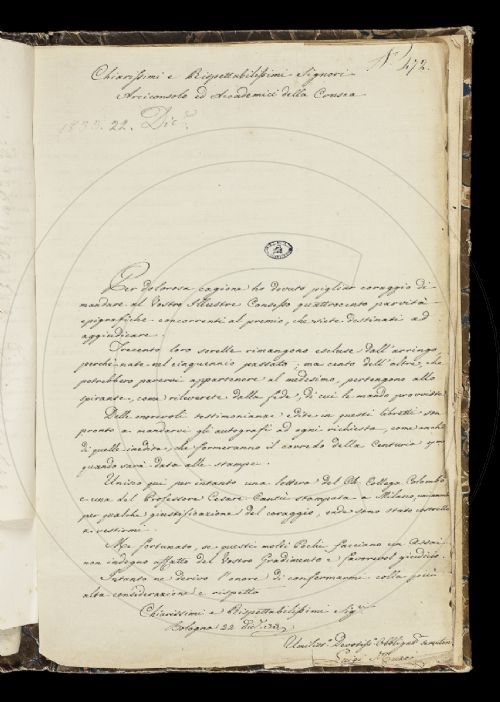 N° 472.
Chiarissimi e Rispettabilissimi Signori
Arciconsolo ed Accademici della Crusca
1835. 22. Dic.e
Per dolorosa cagione ho dovuto pigliar coraggio di
mandare al Vostro Illustre Consesso quattrocento parvità
epigrafiche concorrenti al premio, che siete destinati ad
aggiudicare.
Trecento loro sorelle rimangono escluse dall'arringo,
perchè nate nel cinquennio passato; ma cento dell'altre, che
potrebbero parervi appartenere al medesimo, pertengono allo
spirante, come rileverete dalla fede, di cui le mando provviste.
Delle morevoli testimonianze edite in questi libretti son
pronto a mandarvi gli autografi ad ogni richiesta, come anche
di quelle inedite, che formeranno il corredo della Centuria
quando sarà data alle stampe.
Unisco qui per intanto una lettera del Ch. Collega Colombo
e una del Professore Cesare Cantù stampata a Milano,
per qualche giustificazione del coraggio, onde sono stato
a vestirmi.
Me fortunato, se questi molti Pochi facciano un Assai
non indegno affatto del Vostro Gradimento e favorevol giudizio.
Intanto ne derivo l'onore di confermarmi colla più
alta considerazione e rispetto
Chiarissimi e Rispettabilissimi Sig.ri
Bologna 22 dic.e
Umiliss.o Devotiss.o Obbligat.o
Luigi Muzzi